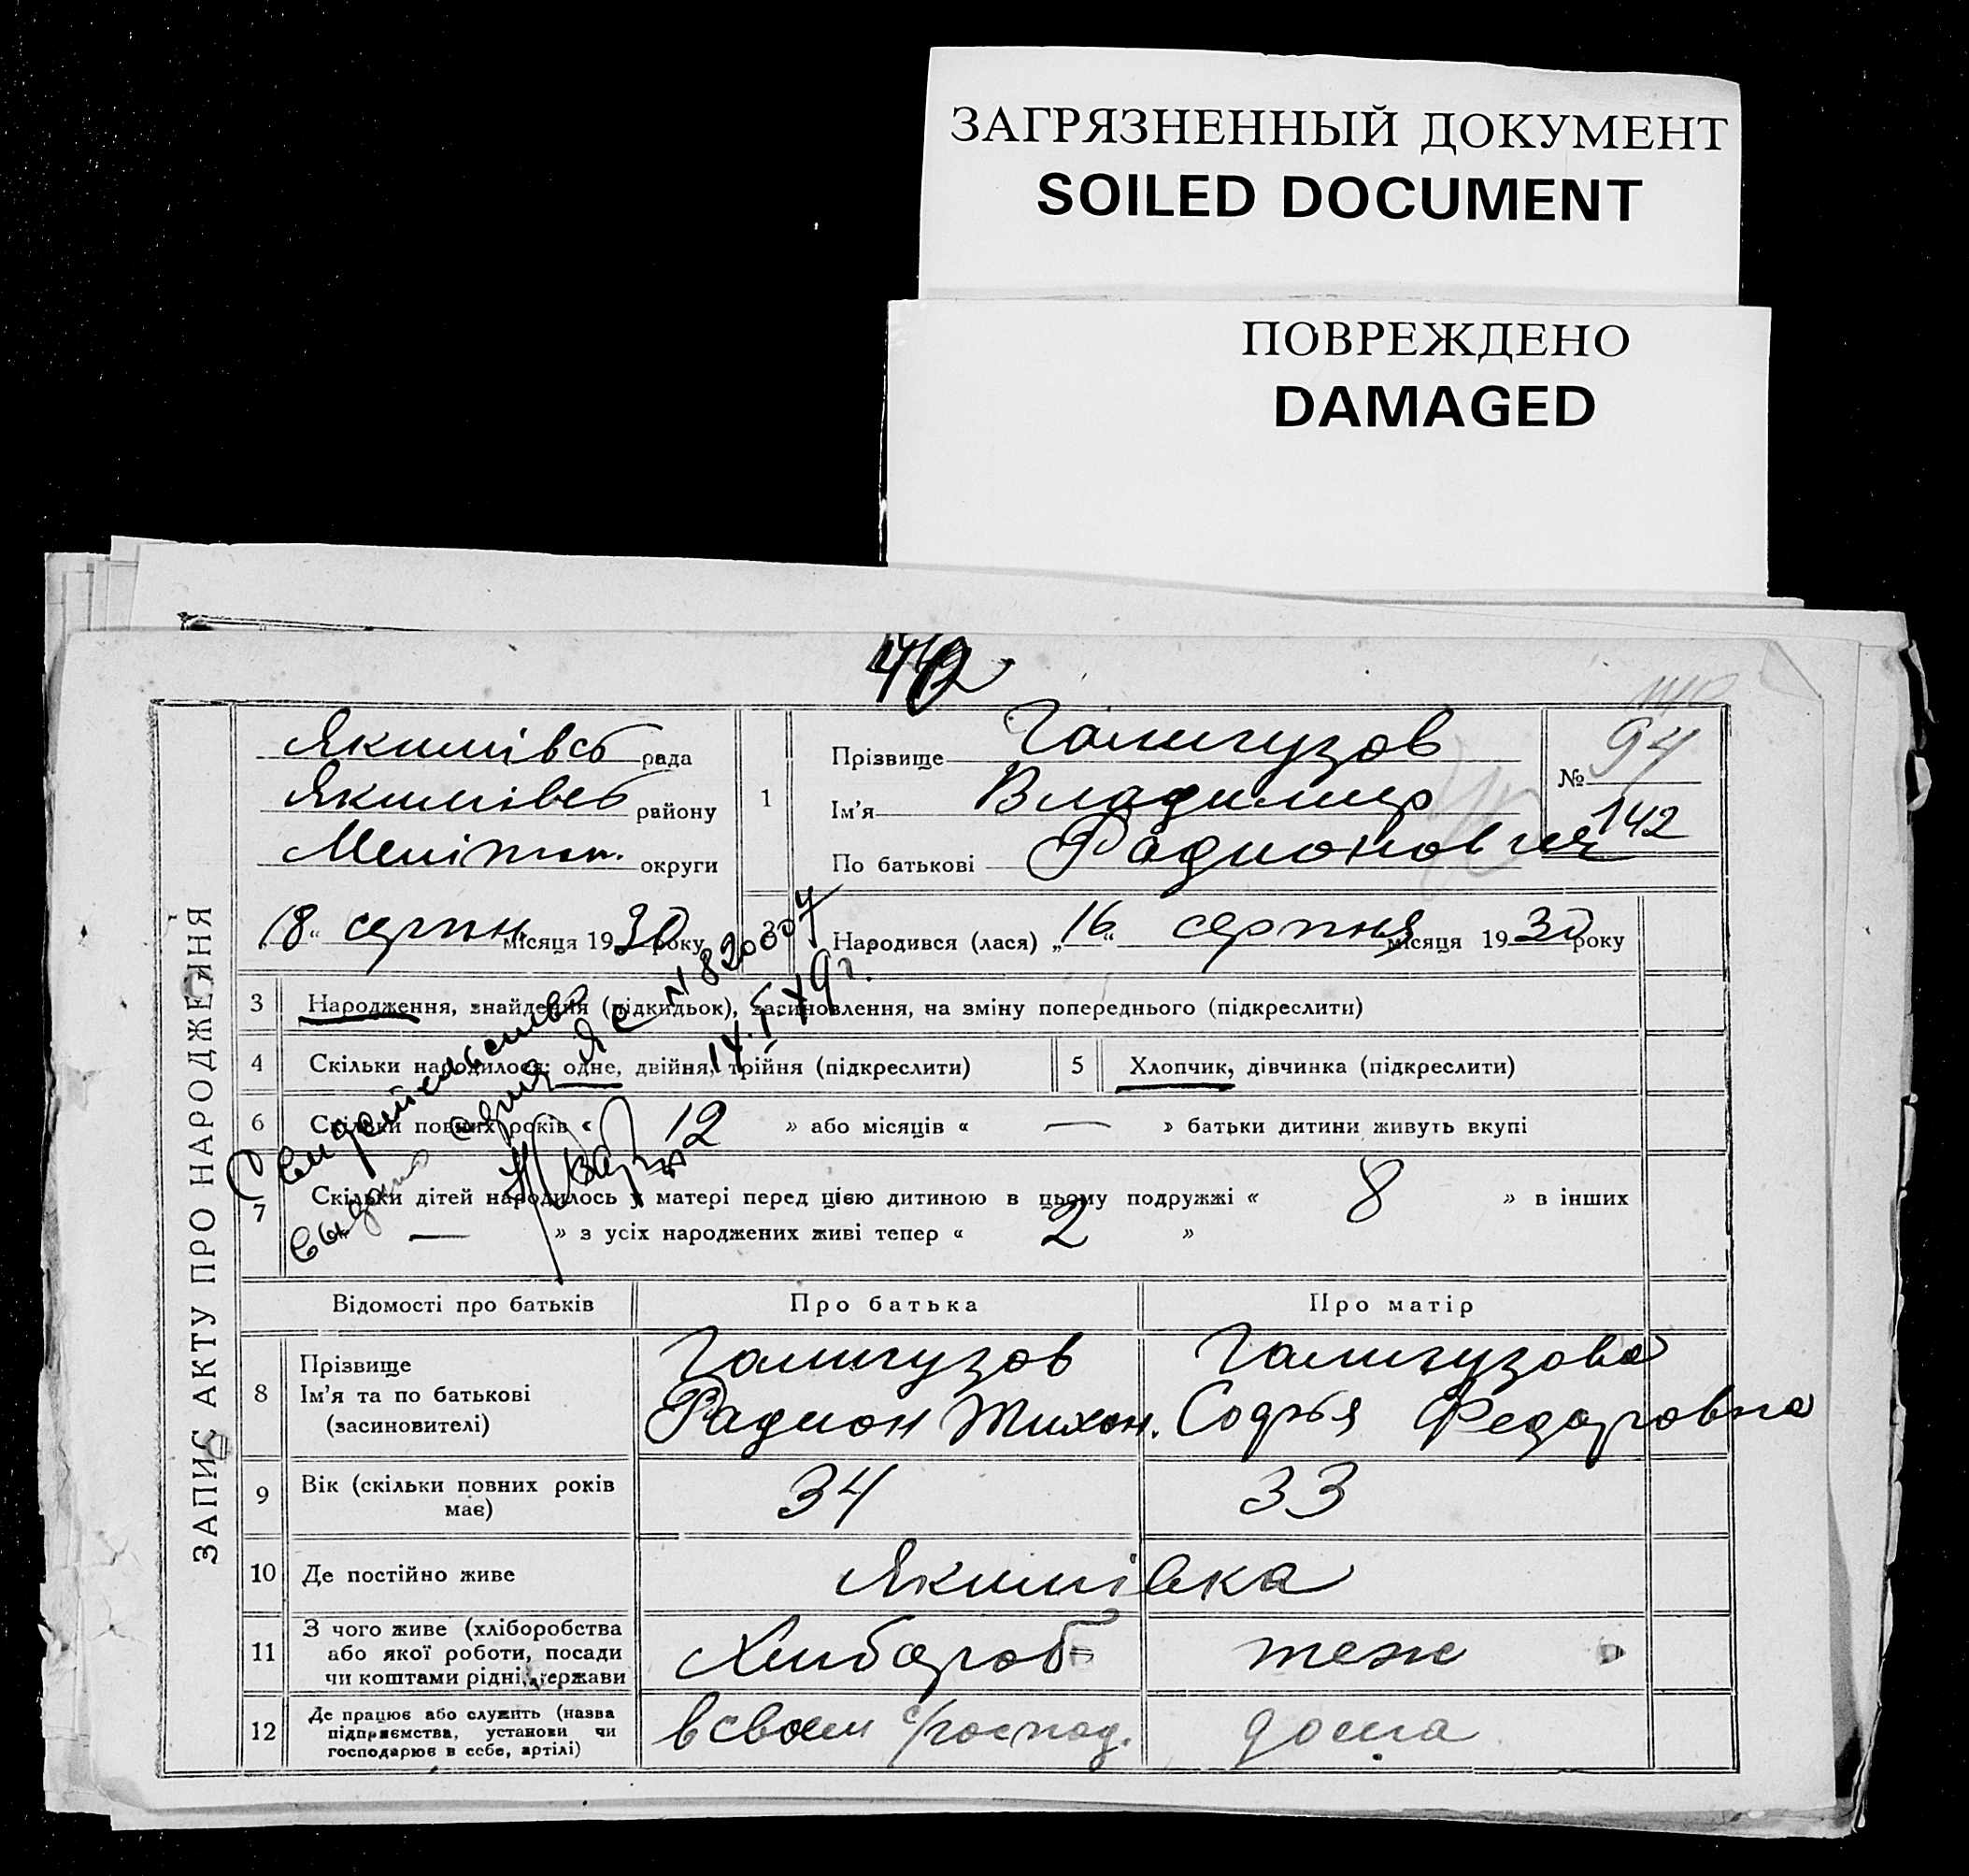 ЗАГРЯЗНЕННЫЙ ДОКУМЕНТ
SOILED DOCUMENT
ПОВРЕЖДЕНО
DAMAGED
ЗАПИС АКТУ ПРО НАРОДЖЕННЯ
Якимівсь рада
Якимівсь району
Меліто округи
18 " серпн місяця 1930 року
1
Прізвище Галигузов
Ім'я Владимир
По батькові Радионович
№ 94
142
Народився (лася) „16" серпня місяця 1930 року
3 Народження, знайдення (підкидьок), засиновлення, на зміну попереднього (підкреслити)
4 Скільки народилося: одне, двійня, трійня (підкреслити)
5 Хлопчик, дівчинка (підкреслити)
6 Скільки повних років « 12 » або місяців « — » батьки дитини живуть вкупі
7 Скільки дітей народилось у матері перед цією дитиною в цьому подружжі « 8 » в інших
— » з усіх народжених живі тепер « 2 »
Свидетельство
выдано серия № 820007
Відомості про батьків Про батька Про матір
8 Прізвище
Ім'я та по батькові
(засиновителі)
Галигузов
Радион Тихон.
Галигузова
Софья Федоровна
9 Вік (скільки повних років
має)
34 33
10 Де постійно живе Якимівка
11 З чого живе (хліборобства
або якої роботи, посади
чи коштами рідні, держави
Хлибороб теж
12 Де працює або служить (назва
підприємства, установи чи
господарює в себе, артілі)
в своем с/господ. дома